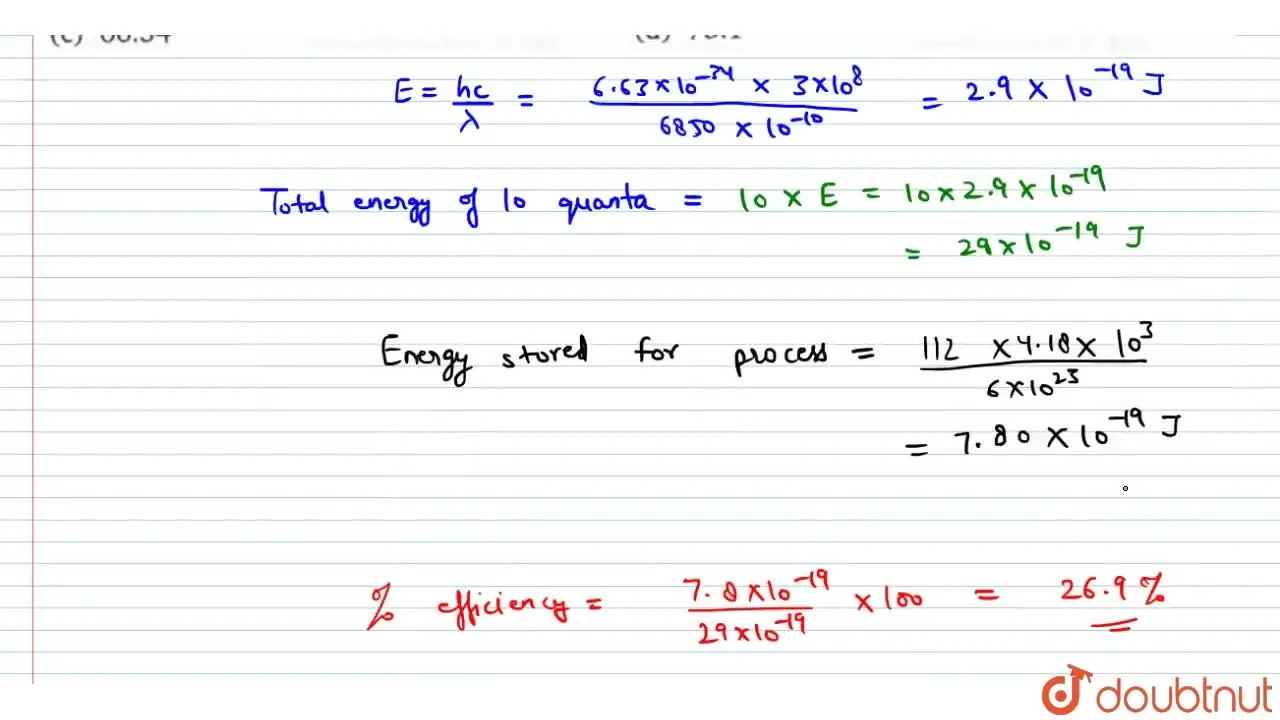 E = hc/λ = 6.63×10⁻³⁴ × 3×10⁸ / 6850 × 10⁻¹⁰ = 2.9 × 10⁻¹⁹ J
Total energy of 10 quanta = 10 × E = 10×2.9×10⁻¹⁹
= 29×10⁻¹⁹ J
Energy stored for process = 112 ×4.18× 10³ / 6×10²³
= 7.80 ×10⁻¹⁹ J
% efficiency = 7.8×10⁻¹⁹ / 29×10⁻¹⁹ ×100 = 26.9 %
doubtnut